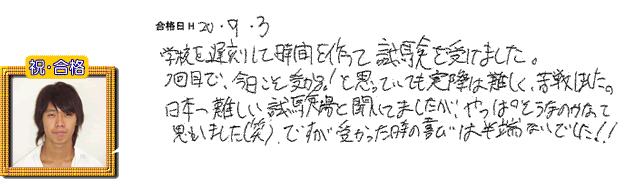 合格日 H 20.9.3
祝・合格
学校を遅刻して時間を作って試験を受けました。
7回目で、今日こそ受かる!と思っていても実際は難しく、苦戦しました。
日本一難しい試験場と聞いてましたが、やっぱりそうなのかなって
思いました(笑)。ですが受かった時の喜びは半端ないでした!!